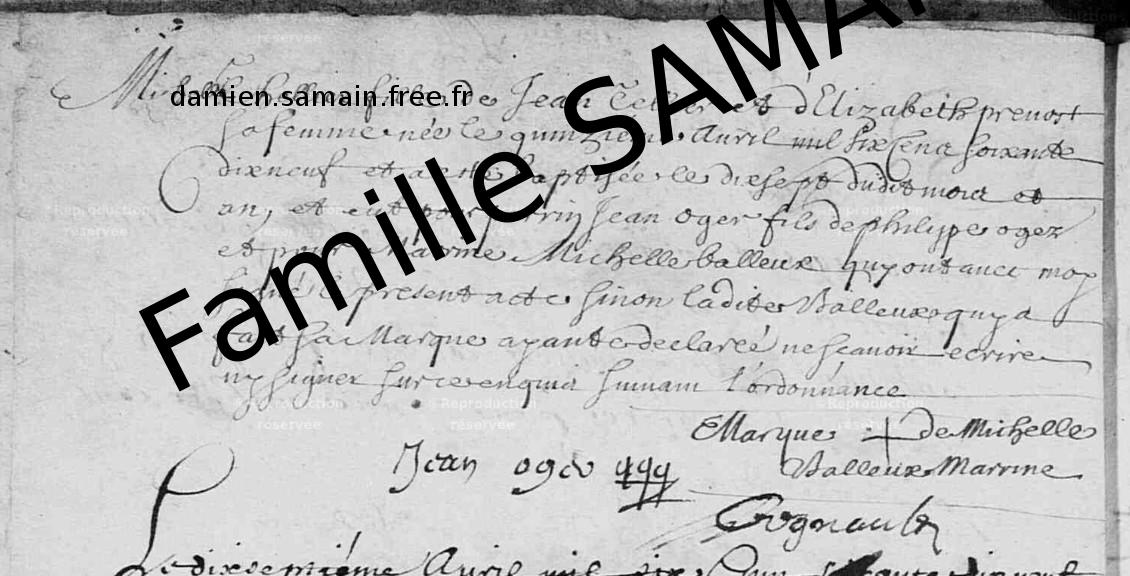 damien.samain.free.fr
Famille SAMA
de Jean Cellier et d'Elizabeth prevost
sa femme née le quinzieme Avril mil six cent soixante
dixneuf et a esté baptisée le dixsept dudit mois et
an, et eut pour parrin Jean oger fils de philippe oger
et pour Marrine Michelle balleux quy ont avec moy
signé le present acte sinon ladite Balleux quy a
fait sa Marque ayante declareé ne scavoir ecrire
ny signer sur ce enquis suivant l'ordonnance
Marque de Michelle
Balleux Marrine
Jean oger
Regnault
Le dixseptiéme Avril mil six
Reproduction
réservée